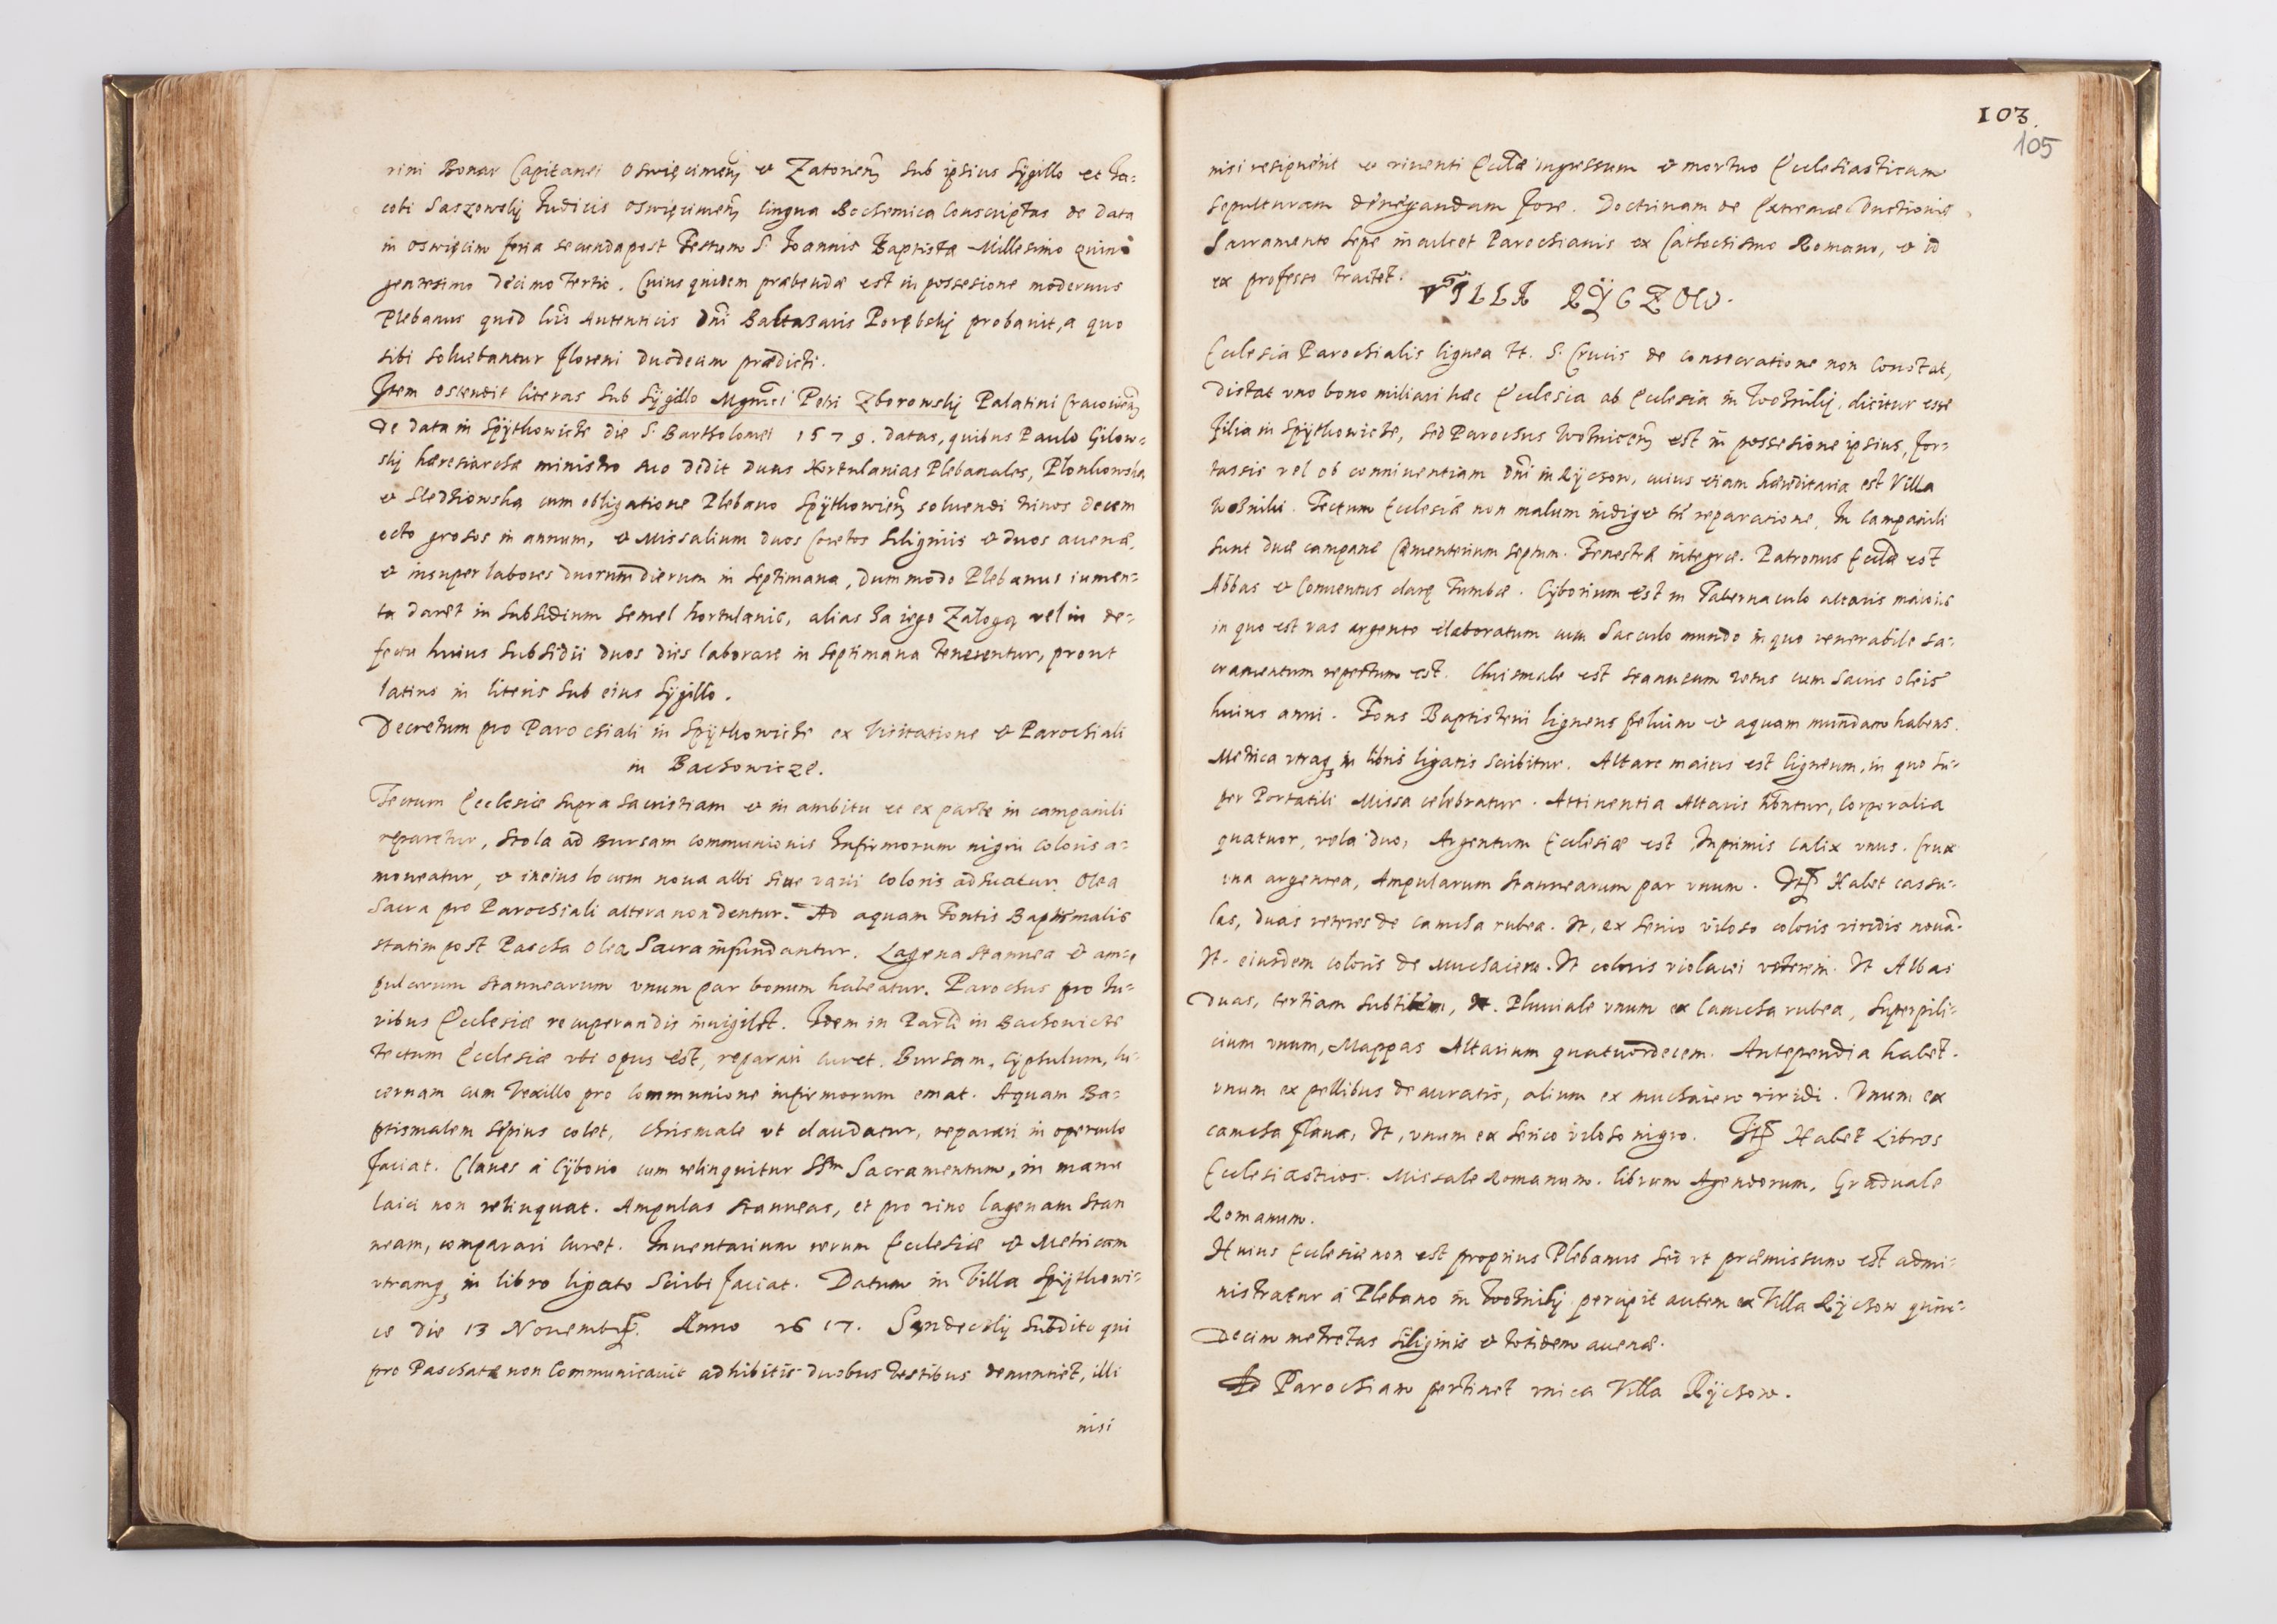 rini Bonar Capitanei Oswięcimen̄ & Zatorien̄ sub ipsius Sÿgillo et Ja-
cobi Saszowskij Judicis Oswięcimen̄ lingua Bochemica Conscriptas de Data
in Oswięcim feria secunda post Festum S. Joannis Baptistæ Millesimo Quin-
gentesimo decimo tertio. Cuius quidem præbendæ est in possesione modernus
Plebanus quod lr̄is Autenticis Dn̄i Baltasaris Porębskij probavit, a quo
sibi soluebantur floreni duodecim prædicti.
Item ostendit literas sub Sÿgillo Mgn̄ci Petri Zborowskij Palatini Cracovien̄
de data in Spÿthowicze die S. Bartholomei 1579. datas, quibus Paulo Gilow-
skij hæresiarchæ ministro suo dedit duas Hortulanias Plebanales, Plonkowska
& Sledziowska cum obligatione Plebano Spÿthowien̄ soluendi singulos decem
octo grosos in annum, & Missalium duos Coretos Siliginis & duos auenæ,
& insuper labores duorum dierum in Septimana, dummodo Plebanus iumen-
ta daret in subsidium semel hortulanis, alias za iego Załogą vel in de-
fectu huius subsidii duos dies laborare in Septimana tenerentur, prout
latius in literis sub eius Sÿgillo.
Decretum pro Parochiali in Spÿthowicze ex Visitatione & Parochiali
in Bachowicze.
Tectum Ecclesiæ supra Sacristiam & in ambitu et ex parte in campanili
reparetur, Stola ad Bursam communionis Infirmorum nigri coloris a-
moueatur, & in eius locum noua albi siue varii coloris adsuatur. Olea
Sacra pro Parochiali altera non dentur. Ad aquam Fontis Baptismalis
statim post Pascha Olea Sacra infundantur. Lagena stannea & am-
pularum stannearum vnum par bonum habeatur. Parochus pro Ju-
ribus Ecclesiæ recuperandis inuigilet. Idem in Parli in Bachowicze
tectum Ecclesiæ vbi opus est, reparari curet. Bursam, Cypsulum, lu-
cernam cum Vexillo pro Communione infirmorum emat. Aquam Ba-
ptismalem sæpius colet, Chrismale vt claudatur, reparari in operculo
faciat. Claues a Cÿborio cum relinquitur SSm̄ Sacramentum, in manu
laici non relinquat. Ampulas stanneas, et pro vino lagenam Stan
neam, comparari curet. Inuentarium rerum Ecclesiæ & Metricam
vtramq; in libro ligato Scribi faciat. Datum in Villa Spÿthowi-
ce die 13 Nouembr. Anno 1617. Sendeckij subdito qui
pro Paschate non Communicauit adhibitis duobus testibus denuntiet, illi
nisi
103.
105
nisi resipuerit & viuenti Eccl̄æ ingressum & mortuo Ecclesiasticam
sepulturam denegandam fore. Doctrinam de Extremæ Vnctionis
Sacramento sæpe inculcet Parochianis ex Cathechismo Romano, & id
ex professo tractet.
VILLA RŸCZOW.
Ecclesia Parochialis lignea tt. S. Crucis de consecratione non Constat,
distat vno bono miliari hæc Ecclesia ab Ecclesia in Woznikij, dicitur esse
filia in Spÿthowicze, sed Parochus Woznicen̄ est in possesione ipsius, for-
tassis vel ob conniuentiam Dn̄i in Rÿczow, cuius etiam hæreditaria est Villa
Wozniki. Tectum Ecclesiæ non malum indiget tn̄ reparatione, In Campanili
sunt duæ campanæ Cæmenterium septum. Fenestræ integræ. Patronus Eccl̄æ est
Abbas & Conuentus claræ Tumbæ. Cÿborium est in Tabernaculo altaris maioris
in quo est vas argento elaboratum cum Sacculo mundo in quo venerabile Sa-
cramentum repertum est. Chrismale est stanneum vetus cum sacris oleis
huius anni. Fons Baptisterii ligneus peluim & aquam mundam habens.
Metrica vtraq; in libris ligatis scribitur. Altare maius est ligneum, in quo su-
per Portatili Missa celebratur. Attinentia Altaris hn̄tur, Corporalia
quatuor, vela duo, Argentum Ecclesiæ est Inprimis Calix vnus. Crux
vna argentea, Ampularum stannearum par vnum. Itē Habet casu-
las, duas veteres de camcha rubea. It. ex serico viloso coloris viridis nouā.
It. eiusdem coloris de Muchaiero. It coloris violacei veterem. It Albas
duas, tertiam subtilem, It. Pluuiale vnum ex Camcha rubea, Superpili-
cium vnum, Mappas Altarium quatuordecem. Antependia habet.
vnum ex pellibus deauratis, alium ex muchaiero viridi. Vnum ex
camcha flaua, It, vnum ex serico viloso nigro. Itē Habet Libros
Ecclesiasticos. Missale Romanum. librum Agendorum, Graduale
Romanum.
Huius Ecclesiæ non est proprius Plebanus sed vt præmissum est admi-
nistratur a Plebano in Woznikij percipit autem ex Villa Rÿczow quin-
decim metretas siliginis & totidem auenæ.
Ad Parochiam pertinet vnica Villa Rÿczow.